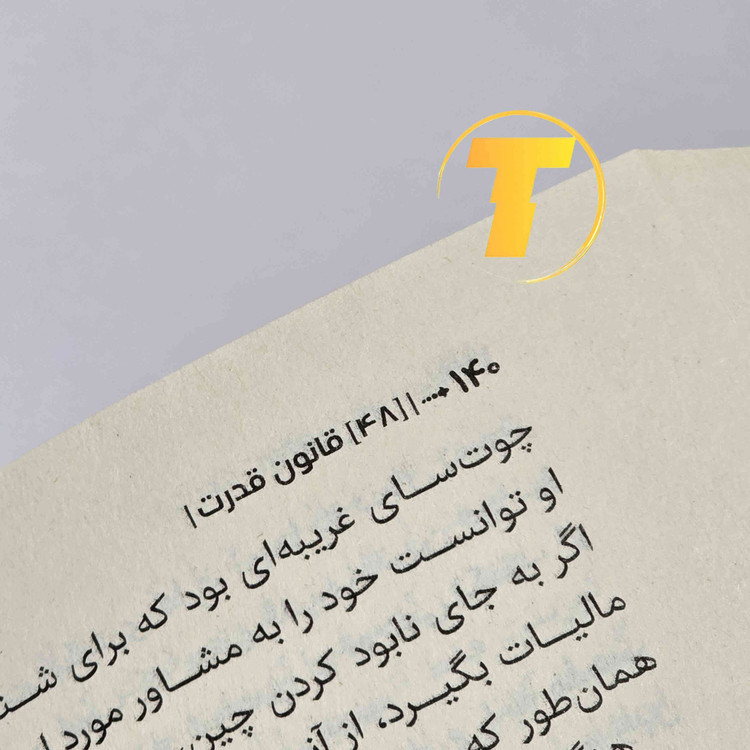 T
۱۴۰ ...| [۴۸] قانون قدرت |
چوت‌سای غریبه‌ای بود که برای
او توانست خود را به مشاور مورد
اگر به جای نابود کردن چین،
مالیات بگیرد، از
همان‌طور که